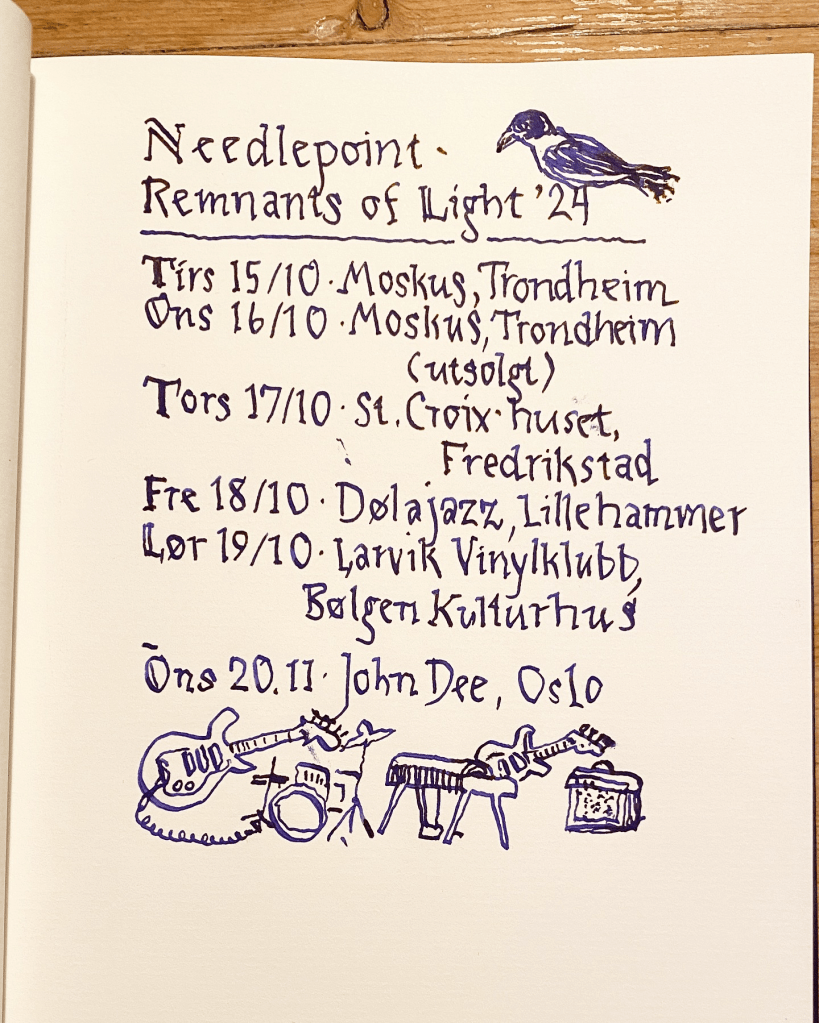 Needlepoint ·
Remnants of Light '24
Tirs 15/10 · Moskus, Trondheim
Ons 16/10 · Moskus, Trondheim
(utsolgt)
Tors 17/10 · St. Croix-huset,
Fredrikstad
Fre 18/10 · Dølajazz, Lillehammer
Lør 19/10 · Larvik Vinylklubb,
Bølgen Kulturhus
Ons 20.11 · John Dee, Oslo